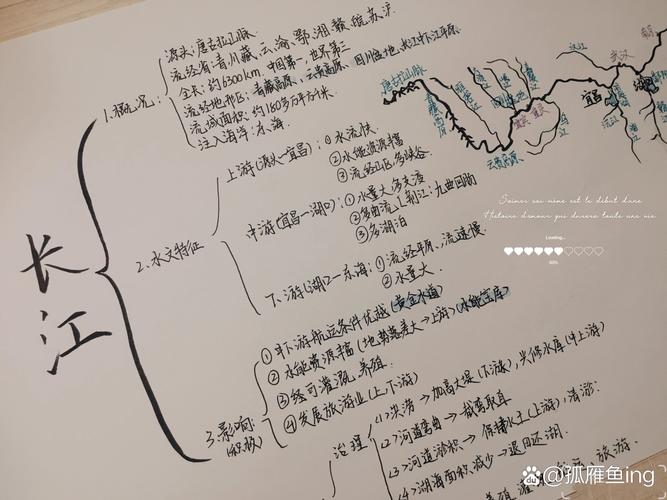 长江
1.概况:
源头:唐古拉山脉
流经省:青川藏、云渝、鄂湘赣、皖苏沪
全长:约6300km,中国第一,世界第三
流经地形区:青藏高原、云贵高原、四川盆地、长江中下江平原
流域面积:约180多万平方千米
注入海洋:东海
2.水文特征
上游(源头—宜昌):①水流快
②水能资源丰富
③流经山区,多峡谷
中游(宜昌—湖口):①水量大,多支流
②多曲流,(荆江:九曲回肠
③多湖泊
下游(湖口—东海:①流经平原、流速慢
②水量大
3.影响
(积极)
①中下游航运条件优越(黄金水道)
②水能资源丰富(地势落差大→上游)(水能宝库)
③经可灌溉、养殖
④发展旅游业(上、下游)
治理
<1>洪涝→加高大堤(下游),兴修水库(中上游)
<2>河道弯曲→裁弯取直
<3>河道淤积→保持水土(上游),清淤
<4>湖海面积减少→退田还湖
旅游
唐古拉山脉
云贵高原
宜昌
武汉
汉江
湖
Saimer soi même est le début dune
Histoire damour qui durera toute une vie
Loading...
60%
@孤雁鱼ing